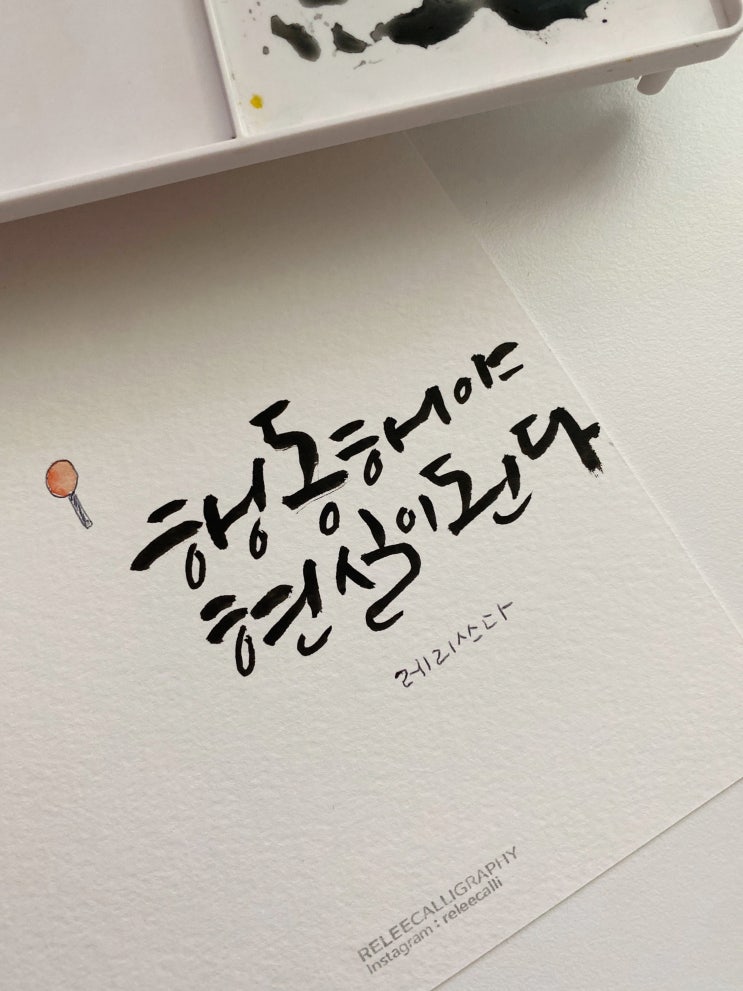 행동해야
현실이 된다
레리쓰다
RELEECALLIGRAPHY
Instagram : releecalli